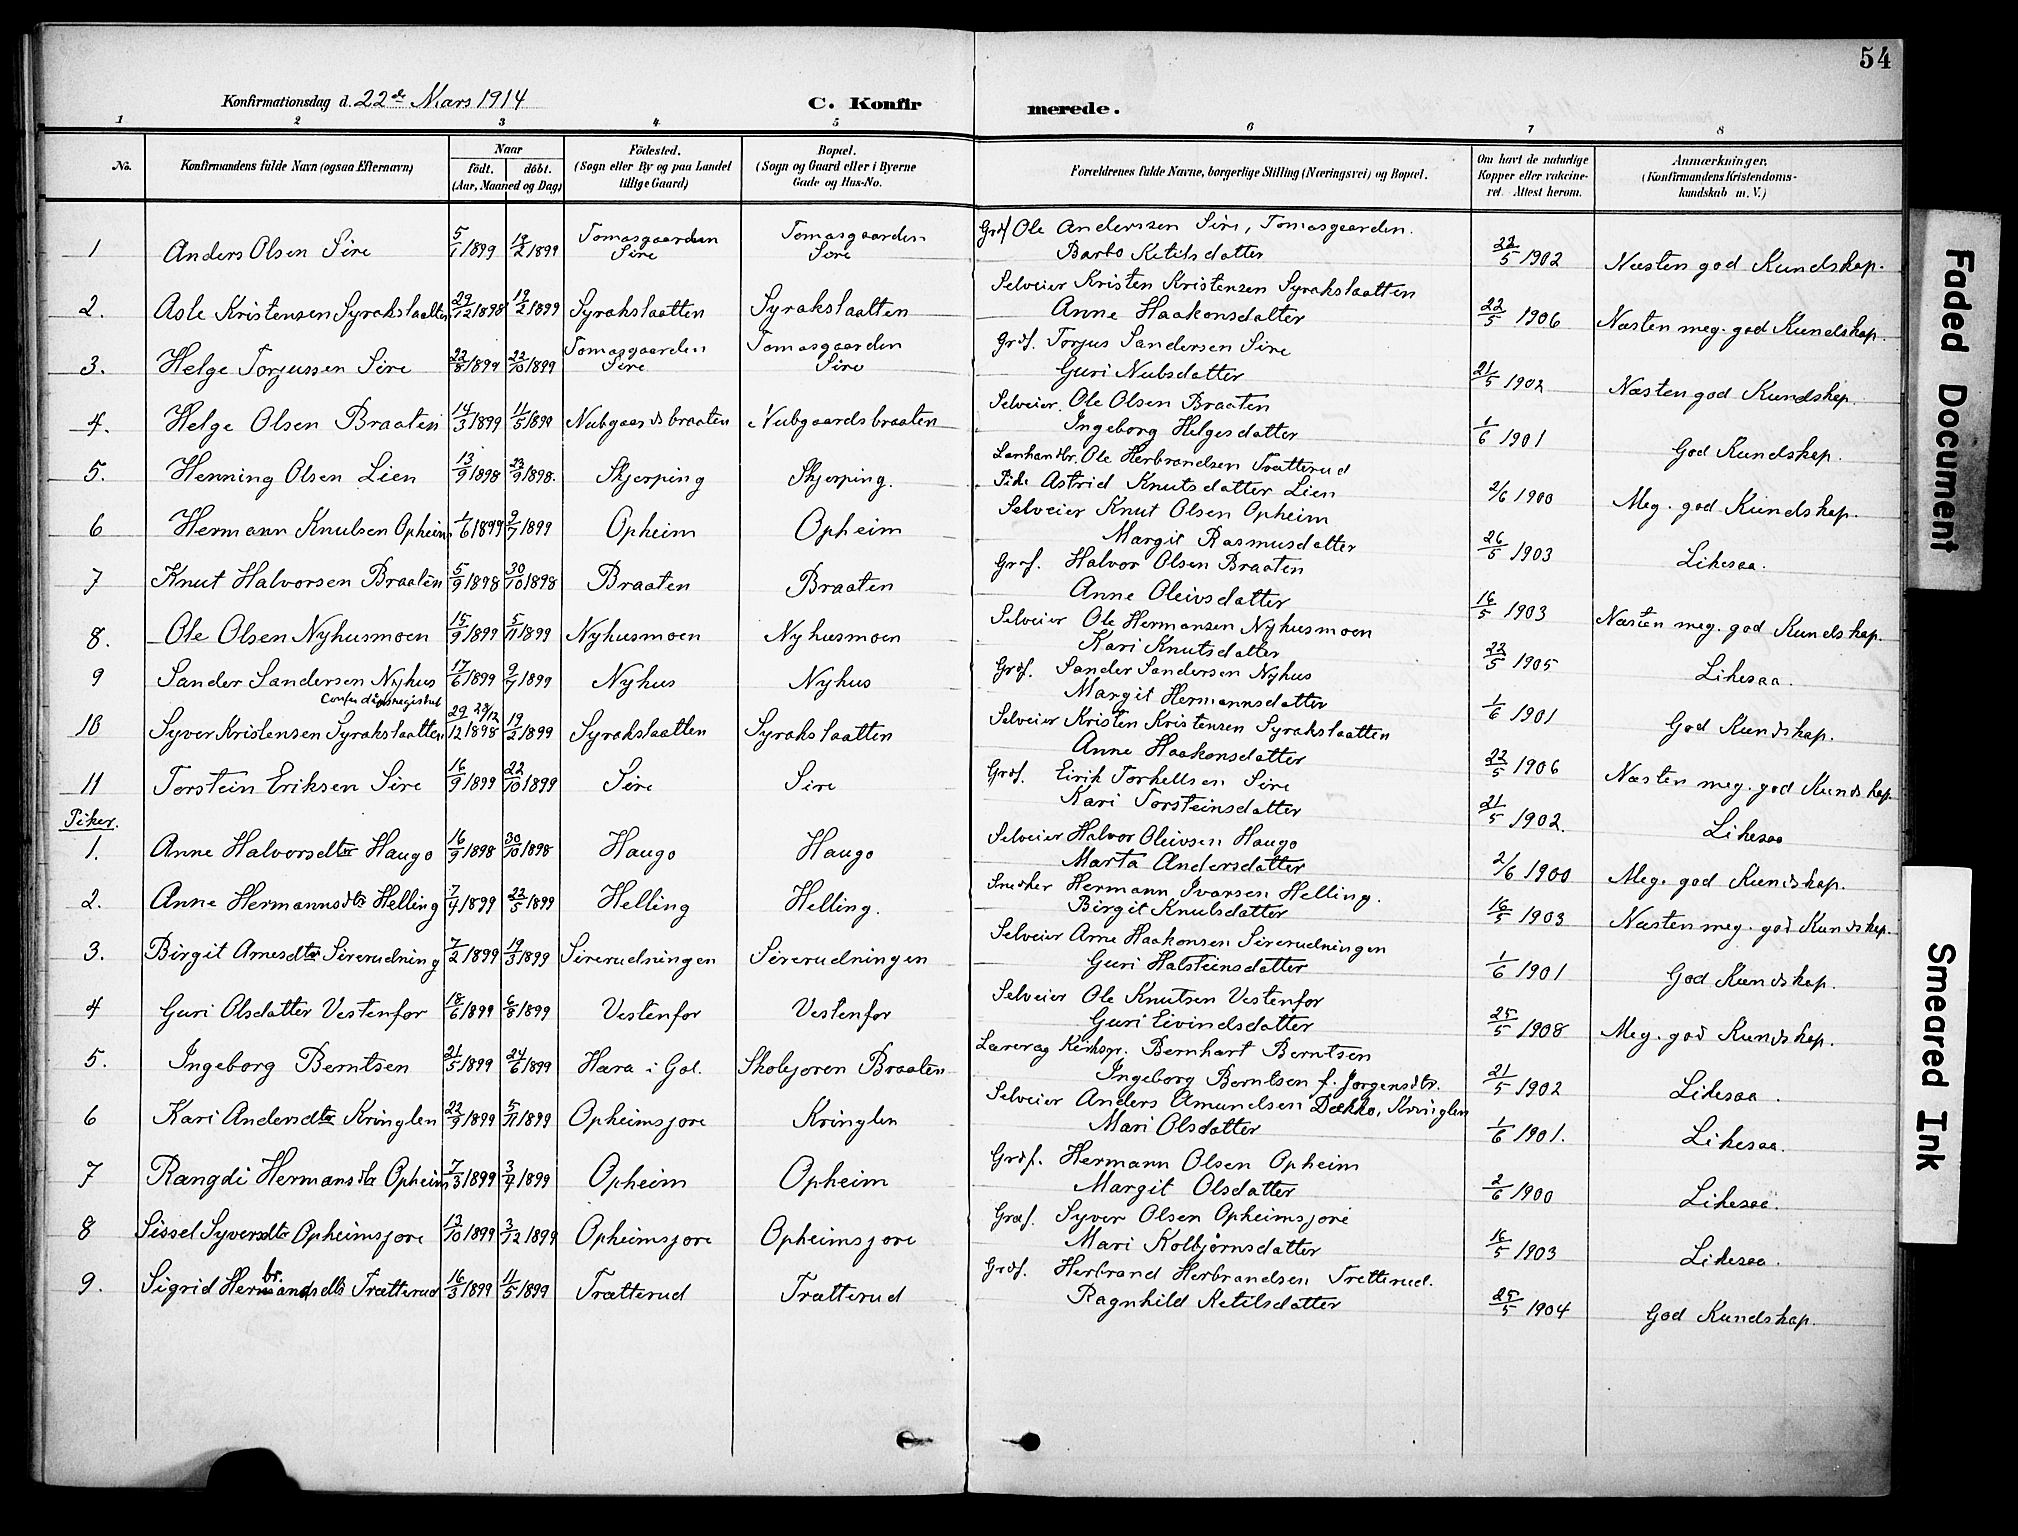 54
Konfirmationsdag d. 22de Mars 1914
C. Konfirmerede.
1 2 3 4 5 6 7 8
No. Konfirmandens fulde Navn (ogsaa Efternavn) Naar født. døbt. (Aar, Maaned og Dag) Fødested. (Sogn eller By og paa Landet tillige Gaard) Bopæl. (Sogn og Gaard eller i Byerne Gade og Hus-No. Forældrenes fulde Navne, borgerlige Stilling (Næringsvei) og Bopæl. Om havt de naturlige Kopper eller vakcineret. Attest herom. Anmærkninger. (Konfirmandens Kristendomskundskab m. V.)
1 Anders Olsen Sire 5/1 1899 19/2 1899 Tomasgaarden Sire Tomasgaarden Sire Grdf Ole Anderssen Sire, Tomasgaarden. Barbo Ketilsdatter 22/5 1902 Næsten god Kundskap.
2. Asle Kristensen Syrakslaatten 29/12 1898 19/2 1899 Syrakslaatten Syrakslaatten Selveier Kristen Kristensen Syrakslaatten Anne Haakonsdatter 22/5 1906 Næsten meg. god Kundskap.
3. Helge Torjussen Sire 22/8 1899 22/10 1899 Tomasgaarden Sire Tomasgaarden Sire Grdf. Torjus Sandersen Sire Guri Nubsdatter 21/5 1902 Næsten god Kundskap.
4. Helge Olsen Braaten 14/3 1899 11/5 1899 Nubgaardsbraaten Nubgaardsbraaten Selveier. Ole Olsen Braaten Ingeborg Helgesdatter 1/6 1901 God Kundskap.
5. Henning Olsen Lien 13/9 1898 23/9 1898. Skjerping Skjerping. Lanhandlr. Ole Herbrandsen Trætterud Pike Astrid Knutsdatter Lien 2/6 1900 Meg. god Kundskap.
6 Hermann Knutsen Opheim 1/6 1899 9/7 1899 Opheim Opheim Selveier Knut Olsen Opheim Margit Rasmusdatter 26/5 1903 Likesaa.
7 Knut Halvorsen Braaten 5/9 1898 30/10 1898 Braaten Braaten Grdf. Halvor Olsen Braaten Anne Oleivsdatter 16/5 1903 Næsten meg. god Kundskap.
8. Ole Olsen Nyhusmoen 15/9 1899 5/11 1899 Nyhusmoen Nyhusmoen Selveier Ole Hermansen Nyhusmoen Kari Knutsdatter 22/5 1905 Likesaa.
9 Sander Sandersen Nyhus 17/6 1899 9/7 1899 Nyhus Nyhus Grdf. Sander Sandersen Nyhus Margit Hermannsdatter 1/6 1901 God Kundskap.
10 Syver Kristensen Syrakslaatten 29/12 1898 28/12 19/2 1899 Syrakslaatten Syrakslaatten Selveier Kristen Kristensen Syrakslaatten Anne Haakonsdatter 22/5 1906 Næsten meg. god Kundskap.
11 Torstein Eriksen Sire 16/9 1899 22/10 1899 Sire Sire Grdf. Eirik Torkellsen Sire Kari Torsteinsdatter 21/5 1902. Likesaa
Piker.
1. Anne Halvorsdtr Haugo 16/9 1898 30/10 1898 Haugo Haugo Selveier Halvor Oleivsen Haugo Marta Andersdatter 2/6 1900 Meg. god Kundskap.
2. Anne Hermannsdtr Helling 7/4 1899 22/5 1899 Helling Helling. Snedker Hermann Ivarsen Helling. Birgit Knutsdatter 16/5 1903 Næsten meg. god Kundskap.
3. Birgit Arnesdtr Sirerudning 7/2 1899 19/3 1899 Sirerudningen Sirerudningen Selveier Arne Haakonsen Sirerudningen Guri Halsteinsdatter 1/6 1901 God Kundskap.
4 Guri Olsdatter Vestenfor 18/6 1899 6/8 1899 Vestenfor Vestenfor Selveier Ole Knutsen Vestenfor Guri Eivindsdatter 25/5 1908 Meg. god Kundskap.
5. Ingeborg Berntsen 21/5 1899 24/6 1899 Hæra i Gol. Skolejoren Braaten Lærer og Kirksgr. Bernhart Berntsen Ingeborg Berntsen f. Jørgensdtr. 21/5 1902 Likesaa.
6 Kari Andersdtr Kringlen 22/9 1899 5/11 1899 Opheimsjore Kringlen Selveier Anders Amundsen Dækko, Kringlen Mari Olsdatter 1/6 1901. Likesaa.
7 Rangdi Hermansdtr Opheim 7/3 1899 3/4 1899 Opheim Opheim Grdf. Hermann Olsen Opheim Margit Olsdatter 2/6 1900 Likesaa.
8 Sissel Syversdtr Opheimsjore 13/10 1899 3/12 1899 Opheimsjore Opheimsjore Grdf. Syver Olsen Opheimsjore Mari Kolbjørnsdatter 16/5 1903 Likesaa.
9. Sigrid Herbrandsdtr Trætterud 16/3 1899 11/5 1899 Trætterud Trætterud Grdf. Herbrand Herbrandsen Trætterud. Ragnhild Ketilsdatter 25/5 1904 God Kundskap.
Faded Document
Smeared Ink